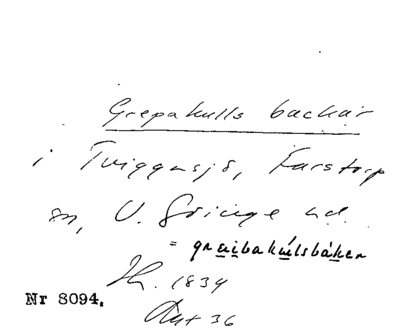 Grepakulls backar
i Tviggasjö, Farstorp
sn, V. Göinge hd.
= graibakulsbaker
Th. 1839
Nr 8094.